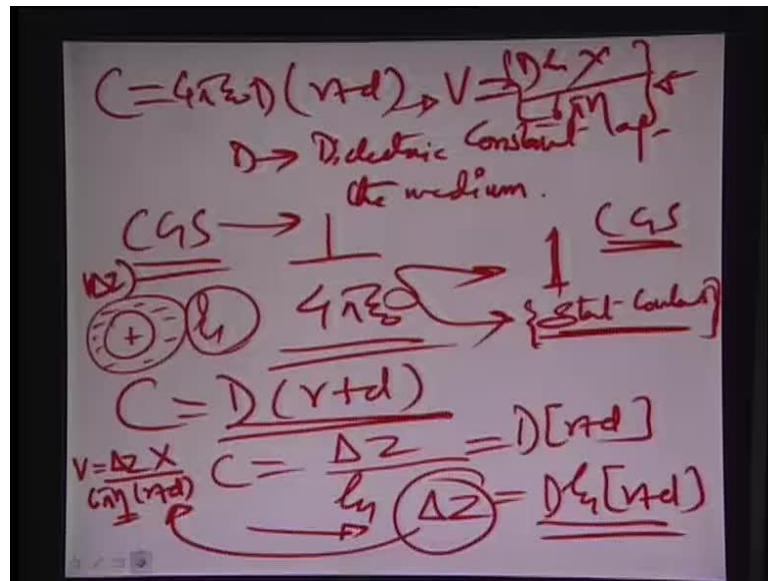 C = 4πε₀D(r+d) → V = {Dξ X / 6πη} ←
D → Dielectric Constant of
the medium.
CGS → 1 / 4πε₀ → 1 CGS
{Stat-Coulomb}
(ΔZ) + ξ
C = D(r+d)
C = ΔZ / ξ = D[r+d]
V = ΔZ X / 6πη(r+d)
ΔZ = Dξ[r+d]